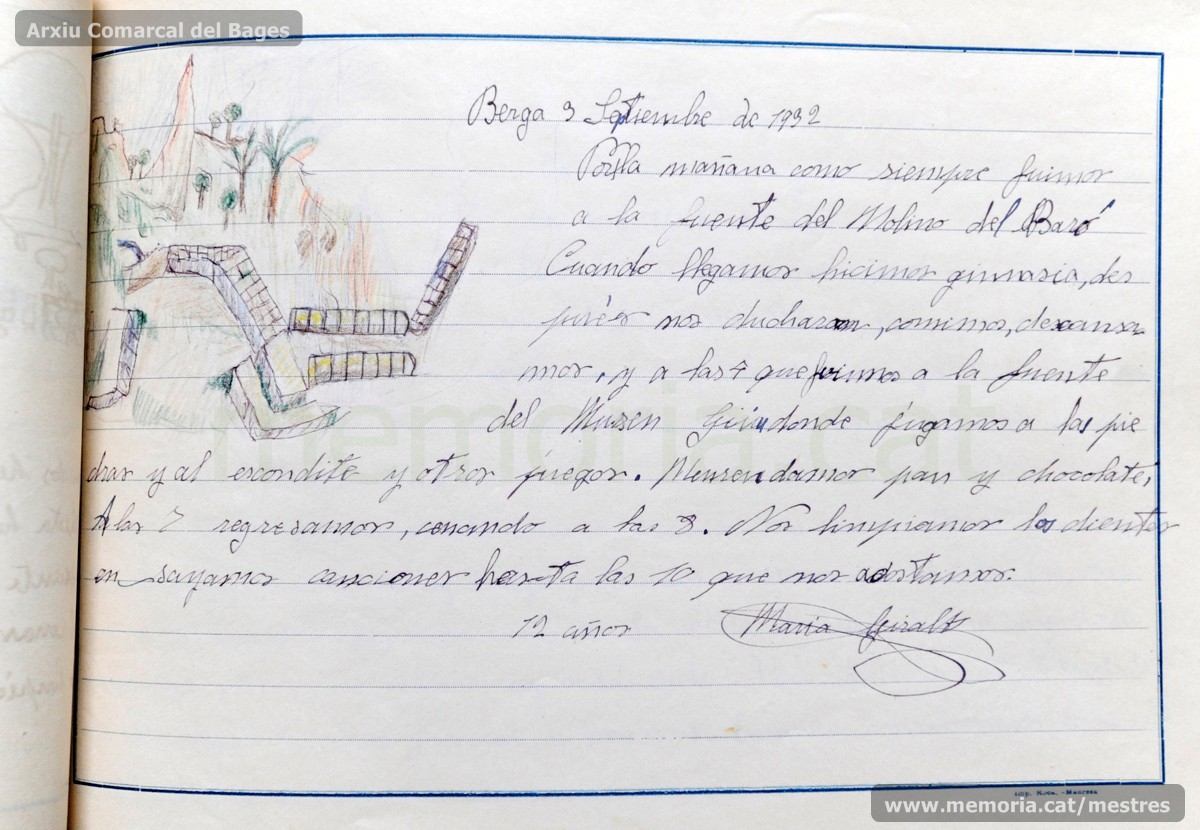 Arxiu Comarcal del Bages
Berga 3 Septiembre de 1932
Por la mañana como siempre fuimos
a la fuente del Molino del Baró
Cuando llegamos hicimos gimnasia, des
pués nos ducharon, comimos, descansa
mos, y a las 4 que fuimos a la fuente
del Musen donde jugamos a las pie
dras y al escondite y otros juegos. Merendamos pan y chocolate,
A las 7 regresamos, cenando a las 8. Nos limpiamos los dientes
en sayamos canciones hasta las 10 que nos acostamos.
12 años Maria Giralt
memoria.cat
Imp. Roca. - Manresa
www.memoria.cat/mestres